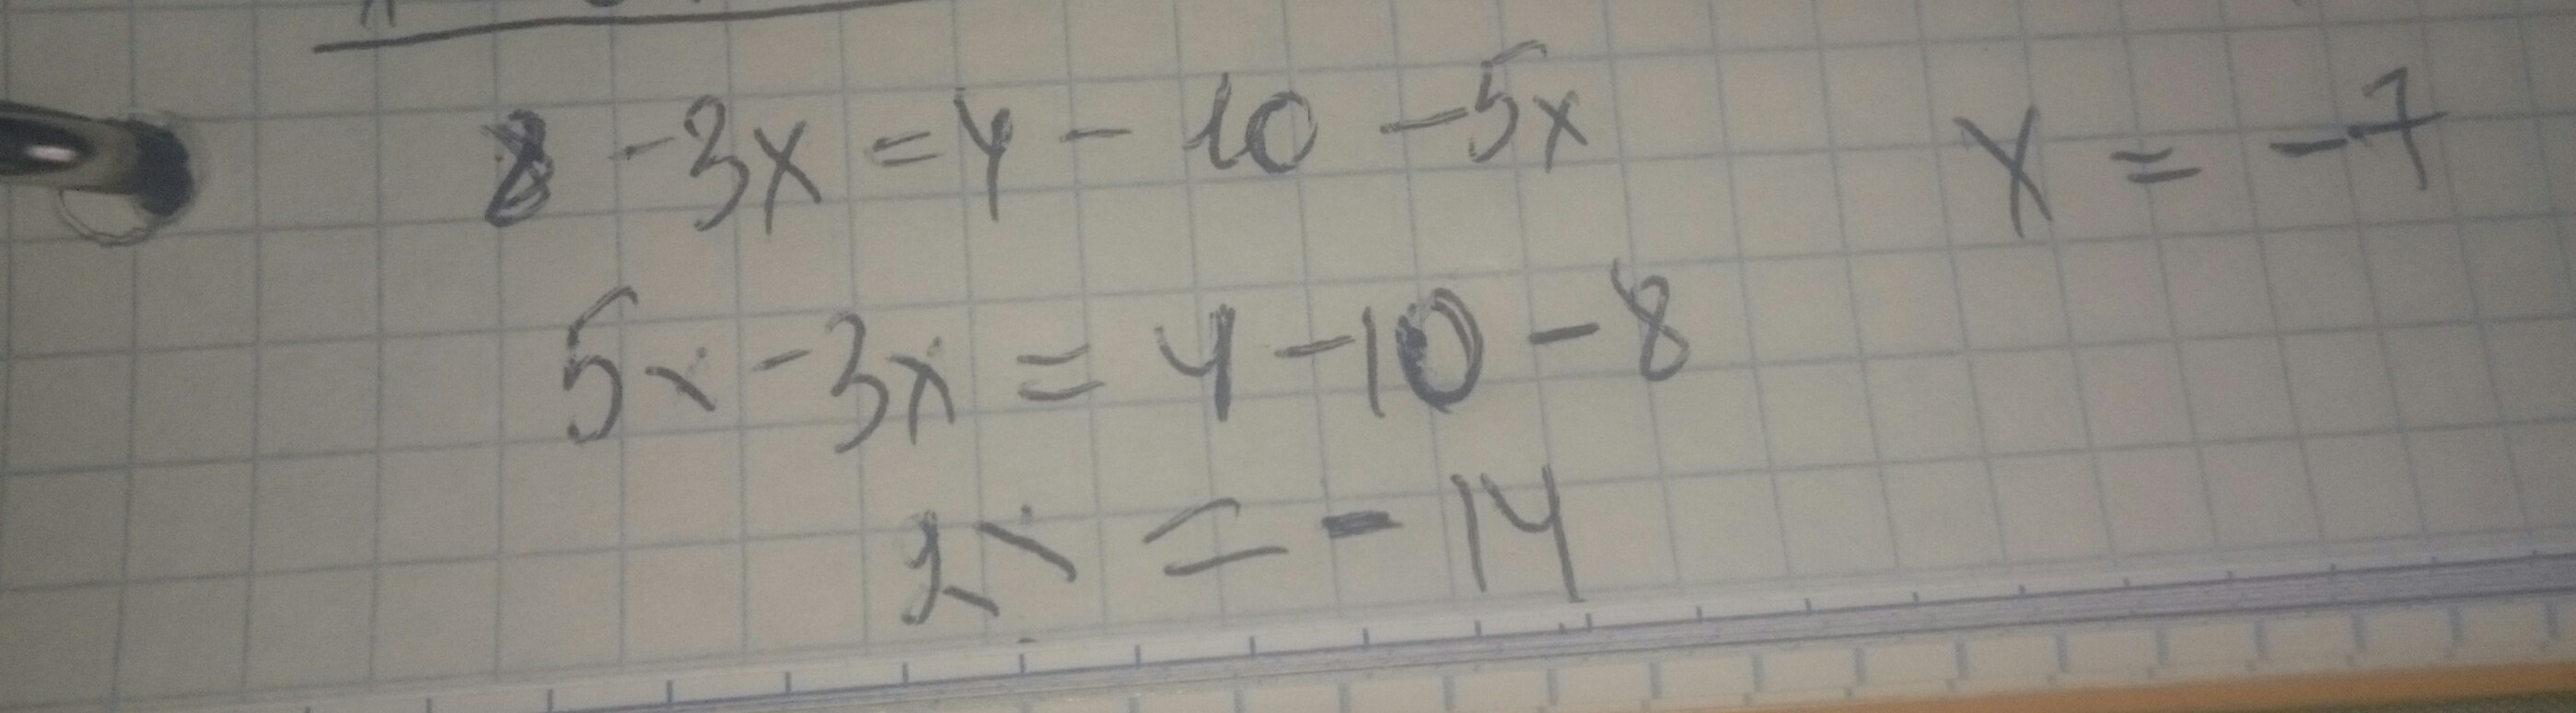 8 - 3x = 4 - 10 - 5x
x = -7
5x - 3x = 4 - 10 - 8
2x = -14